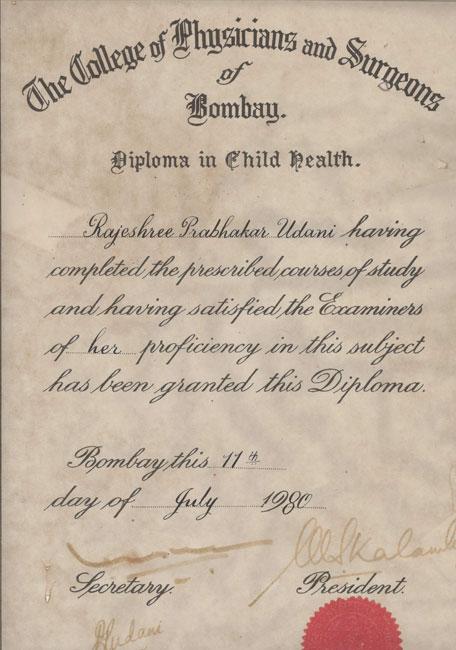 The College of Physicians and Surgeons
of
Bombay.
Diploma in Child Health.
Rajeshree Prabhakar Udani having
completed the prescribed courses of study
and having satisfied the Examiners
of her proficiency in this subject
has been granted this Diploma.
Bombay this 11th
day of July 1980
Secretary. President.